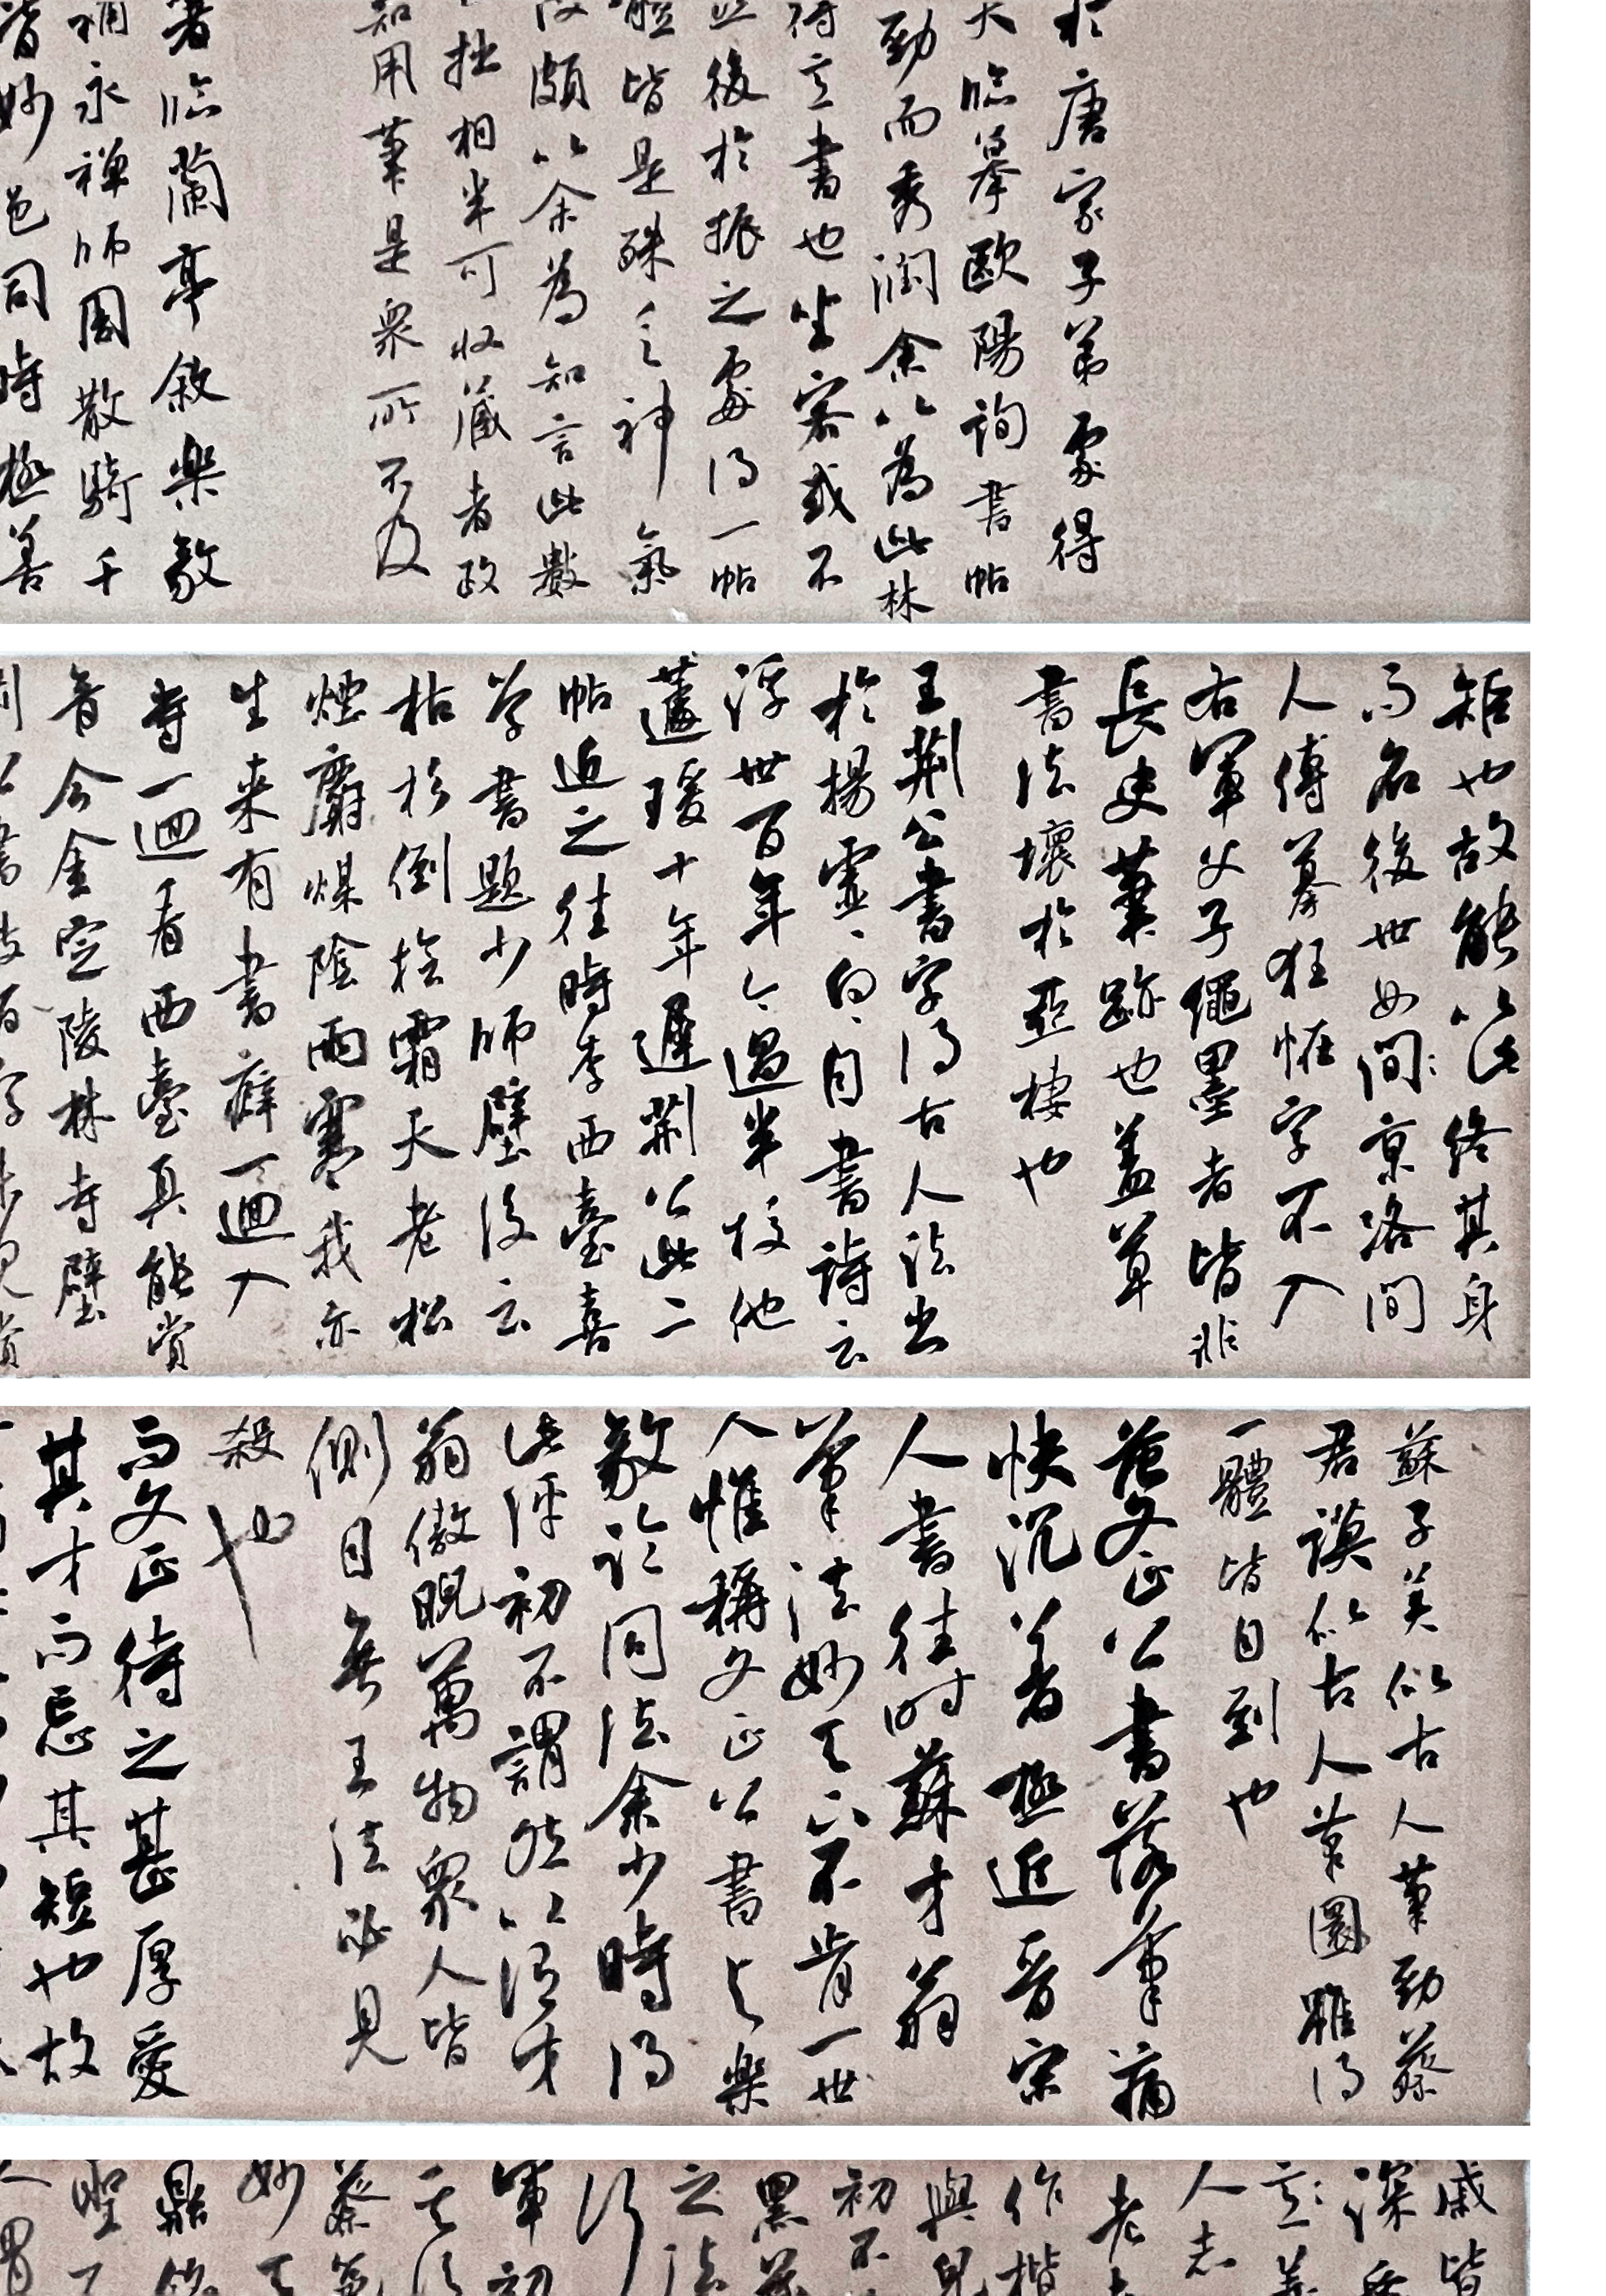 於唐家子弟處得
大臨摹歐陽詢書帖
勁而秀潤余以為此林
得意書也坐客或不
然後於振之處得一帖
體皆是殊乏神氣
以余為知言此數
拙相半可收藏者政
知用筆是衆所不及
者臨蘭亭敘樂毅
補永禪師周散騎千
皆妙絕同時極善
矩也故能以此終其身
而名後世如間京洛間
人傳摹狂怪字不入
右軍父子繩墨者皆非
長史筆跡也蓋草
書法壞於亞棲也
王荊公書字得古人法出
於楊虛白自書詩云
浮世百年今過半校他
蘧瑗十年遲荊公此二
帖近之往時李西臺喜
學書題少師壁後云
枯杉倒檜霜天老松
煙麝煤陰雨寒我亦
生来有書癖一迴入
寺一迴看西臺真能賞
音今金陵定林寺壁
蘇子美似古人筆勁蔡
君謨似古人筆圓雖得
一體皆自到也
范文正公書落筆痛
快沉着極近晉宋
人書往時蘇才翁
筆法妙天下不肯一世
人惟稱文正公書與樂
毅論同法余少時得
此評初不謂然以謂才
翁傲睨萬物衆人皆
側目無王法必見
殺也
而文正待之甚厚愛
其才而忘其短也故
戚皆
深
意
人志
老
作楷
與兒
初不
黑
之法
行
軍初
蔡
妙天
鼎銘
聖